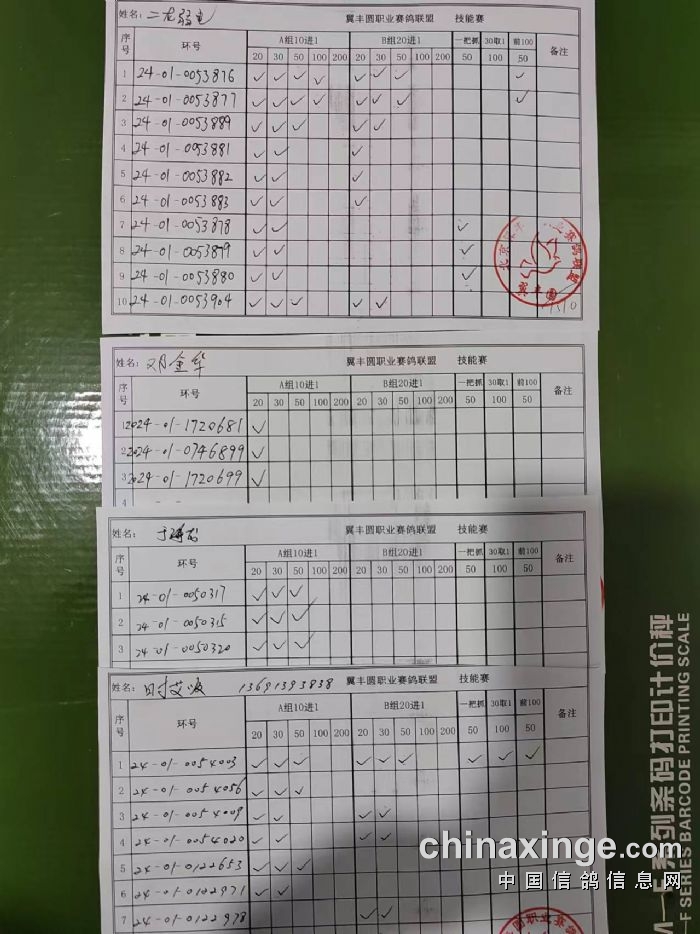 姓名： 二龙弱电 翼丰圆职业赛鸽联盟 技能赛
序号 环号 A组10进1 B组20进1 一把抓 30取1 前100 备注
20 30 50 100 200 20 30 50 100 200 50 100 50
1 24-01-0053876 ✓ ✓ ✓ ✓ ✓ ✓ ✓ ✓
2 24-01-0053877 ✓ ✓ ✓ ✓ ✓ ✓ ✓ ✓
3 24-01-0053889 ✓ ✓ ✓ ✓ ✓
4 24-01-0053881 ✓ ✓ ✓
5 24-01-0053882 ✓ ✓ ✓
6 24-01-0053883 ✓ ✓ ✓
7 24-01-0053878 ✓ ✓ ✓
8 24-01-0053879 ✓ ✓ ✓
9 24-01-0053880 ✓ ✓ ✓
10 24-01-0053904 ✓ ✓ ✓ ✓ ✓
姓名： 邓金华 翼丰圆职业赛鸽联盟 技能赛
序号 环号 A组10进1 B组20进1 一把抓 30取1 前100 备注
20 30 50 100 200 20 30 50 100 200 50 100 50
1 2024-01-1720681 ✓
2 2024-01-0746899 ✓
3 2024-01-1720699 ✓
4
姓名： 翼丰圆职业赛鸽联盟 技能赛
序号 环号 A组10进1 B组20进1 一把抓 30取1 前100 备注
20 30 50 100 200 20 30 50 100 200 50 100 50
1 24-01-0050317 ✓ ✓ ✓
2 24-01-0050315 ✓ ✓ ✓
3 24-01-0050320 ✓ ✓ ✓
姓名： 13691393838 翼丰圆职业赛鸽联盟 技能赛
序号 环号 A组10进1 B组20进1 一把抓 30取1 前100 备注
20 30 50 100 200 20 30 50 100 200 50 100 50
1 24-01-0054003 ✓ ✓ ✓ ✓ ✓ ✓ ✓ ✓ ✓
2 24-01-0054056 ✓ ✓ ✓
3 24-01-0054009 ✓ ✓ ✓ ✓
4 24-01-0054020 ✓ ✓ ✓ ✓
5 24-01-0122653 ✓ ✓ ✓
6 24-01-0122971 ✓ ✓
7 24-01-0122978 ✓ ✓
系列条码打印计价秤
F SERIES BARCODE PRINTING SCALE
chinaxinge.com
中国信鸽信息网